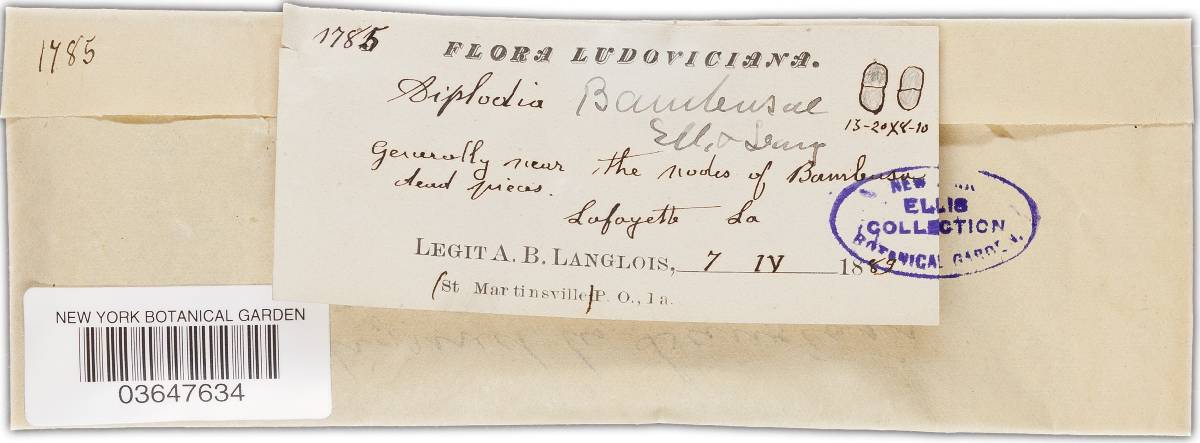 1785
1785
FLORA LUDOVICIANA.
Diplodia Bambusae
Ell. &
13-20X8-10
Generally near the nodes of Bambusa
dead pieces.
Lafayette La
NEW YORK
ELLIS
COLLECTION
BOTANICAL GARDEN.
LEGIT A. B. LANGLOIS, 7 IV 1889
(St Martinsville) P. O., La.
NEW YORK BOTANICAL GARDEN
03647634